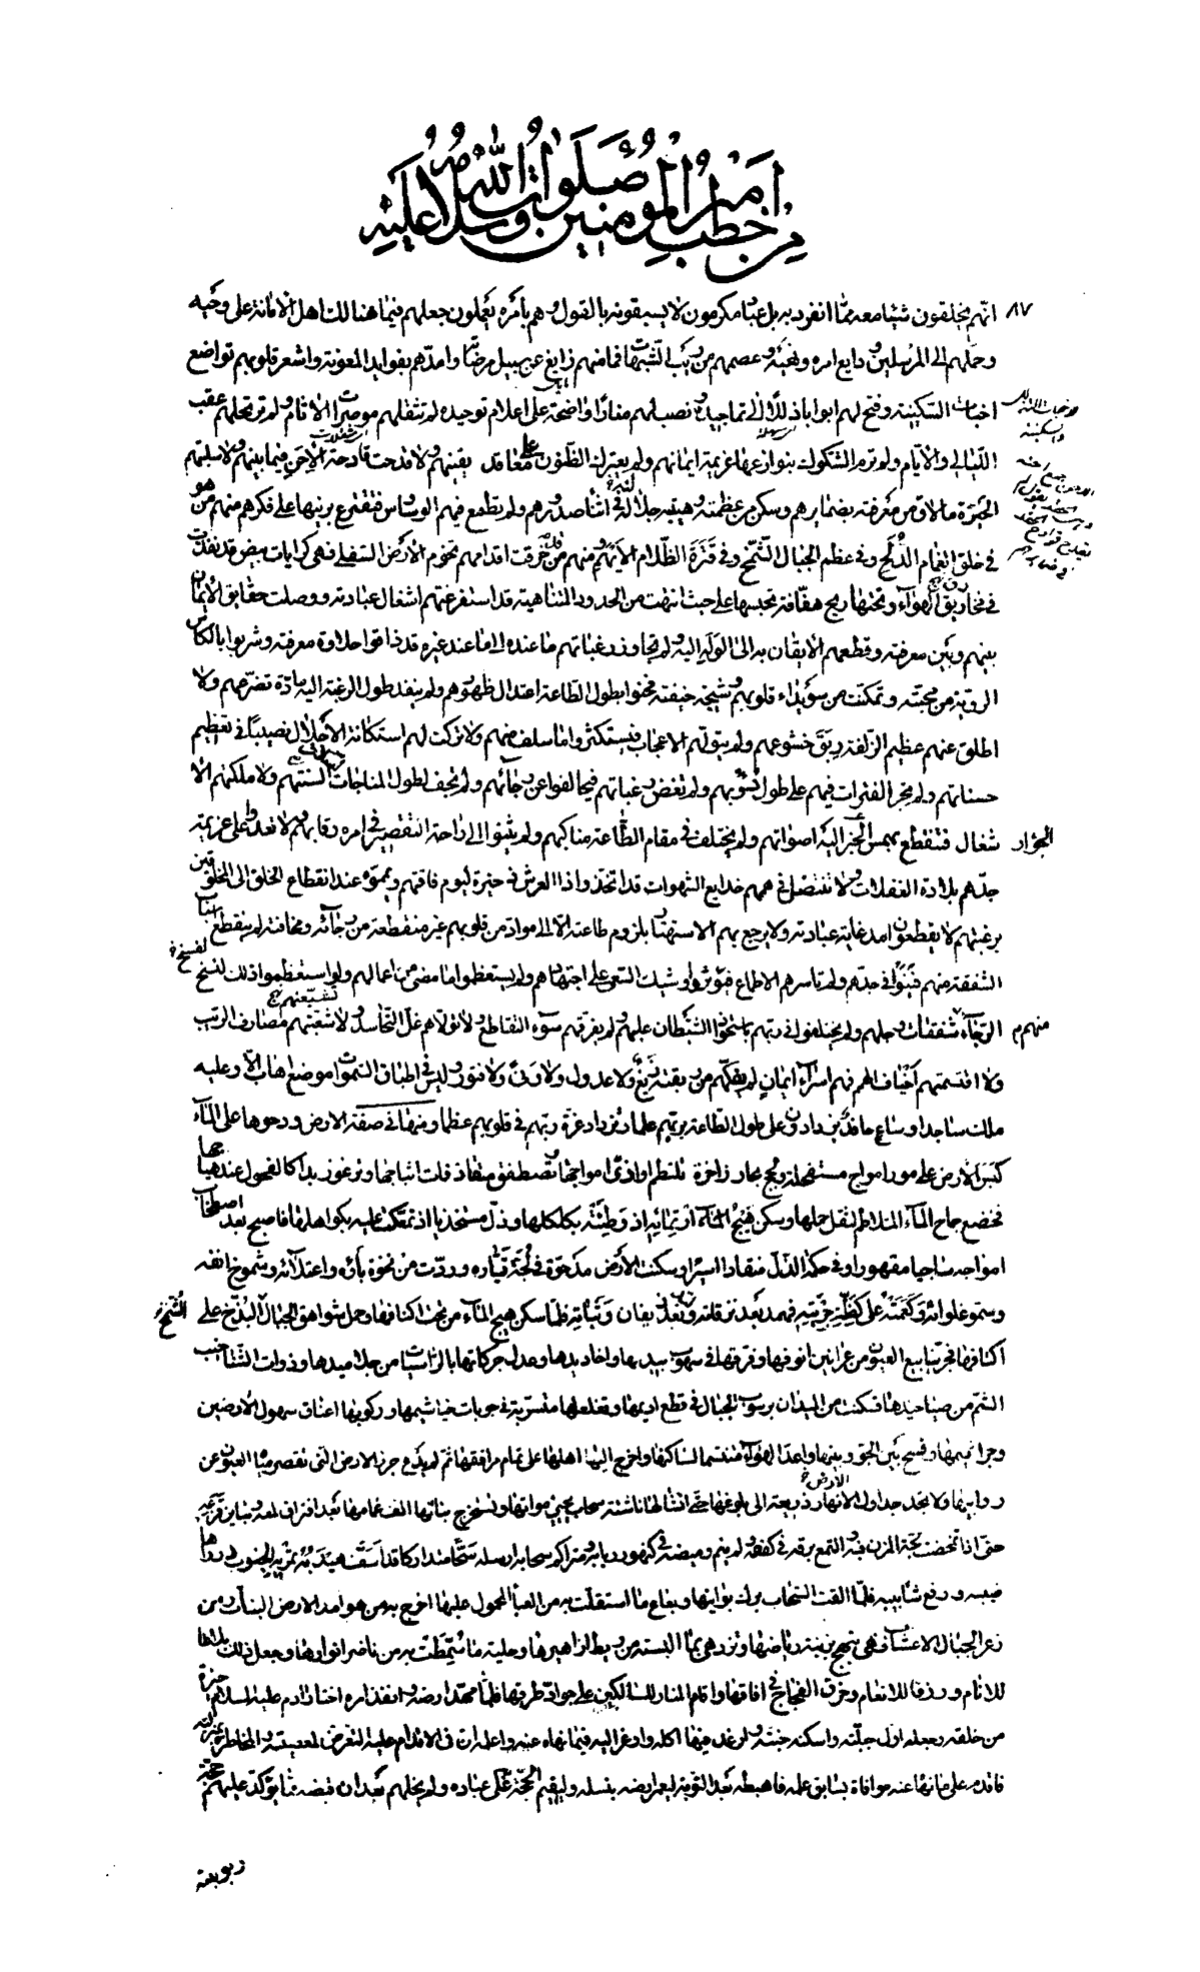 من خطب أمير المؤمنين صلوات الله وسلامه عليه
٨٧
انهم يخلقون شيئا معه مما انفرد به بل عباد مكرمون لا يسبقونه بالقول وهم بأمره يعملون جعلهم فيما هنالك اهل الامانة على وحيه
وحملهم الى المرسلين ودايع امره ونهيه وعصمهم من ريب الشبهات فما منهم زايغ عن سبيل مرضاته وامدهم بفوايد المعونة واشعر قلوبهم تواضع
اخبات السكينة وفتح لهم ابوابا ذللا الى تماجيده ونصب لهم منارا واضحة على اعلام توحيده لم تثقلهم موصرات الاثام ولم ترتحلهم عقب
الليالي والأيام ولم ترم الشكوك بنوازعها عزيمة ايمانهم ولم يعترك الظنون على معاقد يقينهم ولا قدحت قادحة الإحن فيما بينهم ولا سلبتهم
الحيرة ما لاق من معرفته بضمايرهم وسكن من عظمته وهيبة جلاله في اثناء صدورهم ولم يطمع فيهم الوساس فتقترع برينها على فكرهم منهم من هو
في خلق الغمام الدلح وفي عظم الجبال الشمخ وفي قترة الظلام الأيهم ومنهم من خرقت اقدامهم تخوم الأرض السفلى فهي كرايات بيض قد نفذت
في مخاريق الهوآء وتحتها ريح هفافة تحبسها على حيث انتهت من الحدود المتناهية قد استفرغتهم اشغال عبادته ووصلت حقايق الأيمان
بينهم وبين معرفته وقطعهم الايقان به الى الوله اليه ولم تجاوز رغباتهم ما عنده الى ما عند غيره قد ذاقوا حلاوة معرفته وشربوا بالكاس
الروية من محبته وتمكنت من سويداء قلوبهم وشيجة خيفته فحنوا بطول الطاعة اعتدال ظهورهم ولم ينفد طول الرغبة اليه مادة تضرعهم ولا
اطلق عنهم عظيم الزلفة ربق خشوعهم ولم يتولهم الاعجاب فيستكثروا ما سلف منهم ولا تركت لهم استكانة الأجلال نصيبا في تعظيم
حسناتهم ولم يجر الفترات فيهم على طول دؤوبهم ولم تغض رغباتهم فيخالفوا عن رجآء ربهم ولم يجف لطول المناجات السنتهم ولا ملكتهم الا
شغال فتنقطع بهمس الخير اليه اصواتهم ولم يختلف في مقام الطاعة مناكبهم ولم يثنوا الى راحة التقصير في امره رقابهم ولا تعدوا على عزيمة
الجؤار
جدهم بلادة الغفلات ولا تنتضل في هممهم خدايع الشهوات قد اتخذوا ذا العرش ذخيرة ليوم فاقتهم ويمموه عند انقطاع الخلق الى المخلوقين
برغبتهم لا يقطعون امد غاية عبادته ولا يرجع بهم الاستهتار بلزوم طاعته الا الى مواد من قلوبهم غير منقطعة من رجآئه ومخافته لم ينقطع اسباب
الشفقة منهم فينوا في جدهم ولم تاسرهم الاطماع فيؤثروا وشيك السعي على اجتهادهم ولم يستعظموا ما مضى من اعمالهم ولو استعظموا ذلك لنسخ
الرجآء شفقات وجلهم ولم يختلفوا في ربهم باستحواذ الشيطان عليهم ولم يفرقهم سوء التقاطع ولا تولاهم غل التحاسد ولا شعبتهم مصارف الريب
منهم
ولا اقتسمتهم أخياف الهمم فهم اسرآء ايمان لم يفكهم من ربقته زيغ ولا عدول ولا ونى ولا فتور وليس في اطباق السموات موضع اهاب الا وعليه
ملك ساجد او ساع حافد يزدادون على طول الطاعة بربهم علما وتزداد عزة ربهم في قلوبهم عظما ومنها في صفة الارض ودحوها على المآء
كبس الارض على مور امواج مستفحلة ولجج بحار زاخرة تلتطم اواذي امواجها وتصطفق متقاذفات اثباجها وترغو زبدا كالفحول عند هياجها
فخضع جماح المآء المتلاطم لثقل حملها وسكن هيج المآء ارتمائه اذ وطئته بكلكلها وذل مستخذيا اذ تمعكت عليه بكواهلها فاصبح بعد اصطخاب
امواجه ساجيا مقهورا وفي حكمة الذل منقادا اسيرا وسكنت الأرض مدحوة في لجة تياره وردت من نخوة بأوه واعتلآئه وشموخ انفه
وسمو غلوائه وكعمته على كظة جريته فهمد بعد نزقاته وبعد زيفان وثباته فلما سكن هيج المآء من تحت اكنافها وحمل شواهق الجبال البذخ على
الشمخ
اكتافها فجر ينابيع العيون من عرانين انوفها وفرقها في سهوب بيدها واخاديدها وعدل حركاتها بالراسيات من جلاميدها وذوات الشناخيب
الشم من صياخيدها فسكنت من الميدان برسوب الجبال في قطع اديمها وتغلغلها متسربة في جوبات خياشيمها وركوبها اعناق سهول الأرضين
وجراثيمها وفسح بين الجو وبينها واعد الهوآء متنسما لساكنها واخرج اليها اهلها على تمام مرافقها ثم لم يدع جرز الارض التي تقصر مياه العيون عن
روابيها ولا تجد جداول الانهار ذريعة الى بلوغها حتى انشأ لها ناشئة سحاب تحيي مواتها وتستخرج نباتها الف غمامها بعد افتراق لمعه وتباين قزعه
حتى اذا تمخضت لجة المزن فيه والتمع برقه في كففه ولم ينم وميضه في كنهور ربابه ومتراكم سحابه ارسله سحا متداركا قد اسف هيدبه تمريه الجنوب درر
اهاضيبه ودفع شآبيبه فلما القت السحاب برك بوانيها وبعاع ما استقلت به من العبا المحمول عليها اخرج به من هوامد الارض النبات ومن
زعر الجبال الاعشاب فهي تبهج بزينة رياضها وتزدهي بما البسته من ريط ازاهيرها وحلية ما سمطت به من ناضر انوارها وجعل ذلك بلاغا
للانام ورزقا للانعام وخرق الفجاج في افاقها واقام المنار للسالكين على جواد طرقها فلما مهد ارضه وانفذ امره اختار ادم عليه السلام خيرة
من خلقه وجعله اول جبلته واسكنه جنته وارغد فيها اكله واوعز اليه فيما نهاه عنه واعلمه ان في الاقدام عليه التعرض لمعصيته والمخاطرة بمنزلته
فاقدم على ما نهاه عنه موافاة بسابق علمه فاهبطه بعد التوبة ليعمر ارضه بنسله وليقيم الحجة على عباده ولم يخلهم بعد ان قبضه مما يؤكد عليهم حجة
ربوبيته